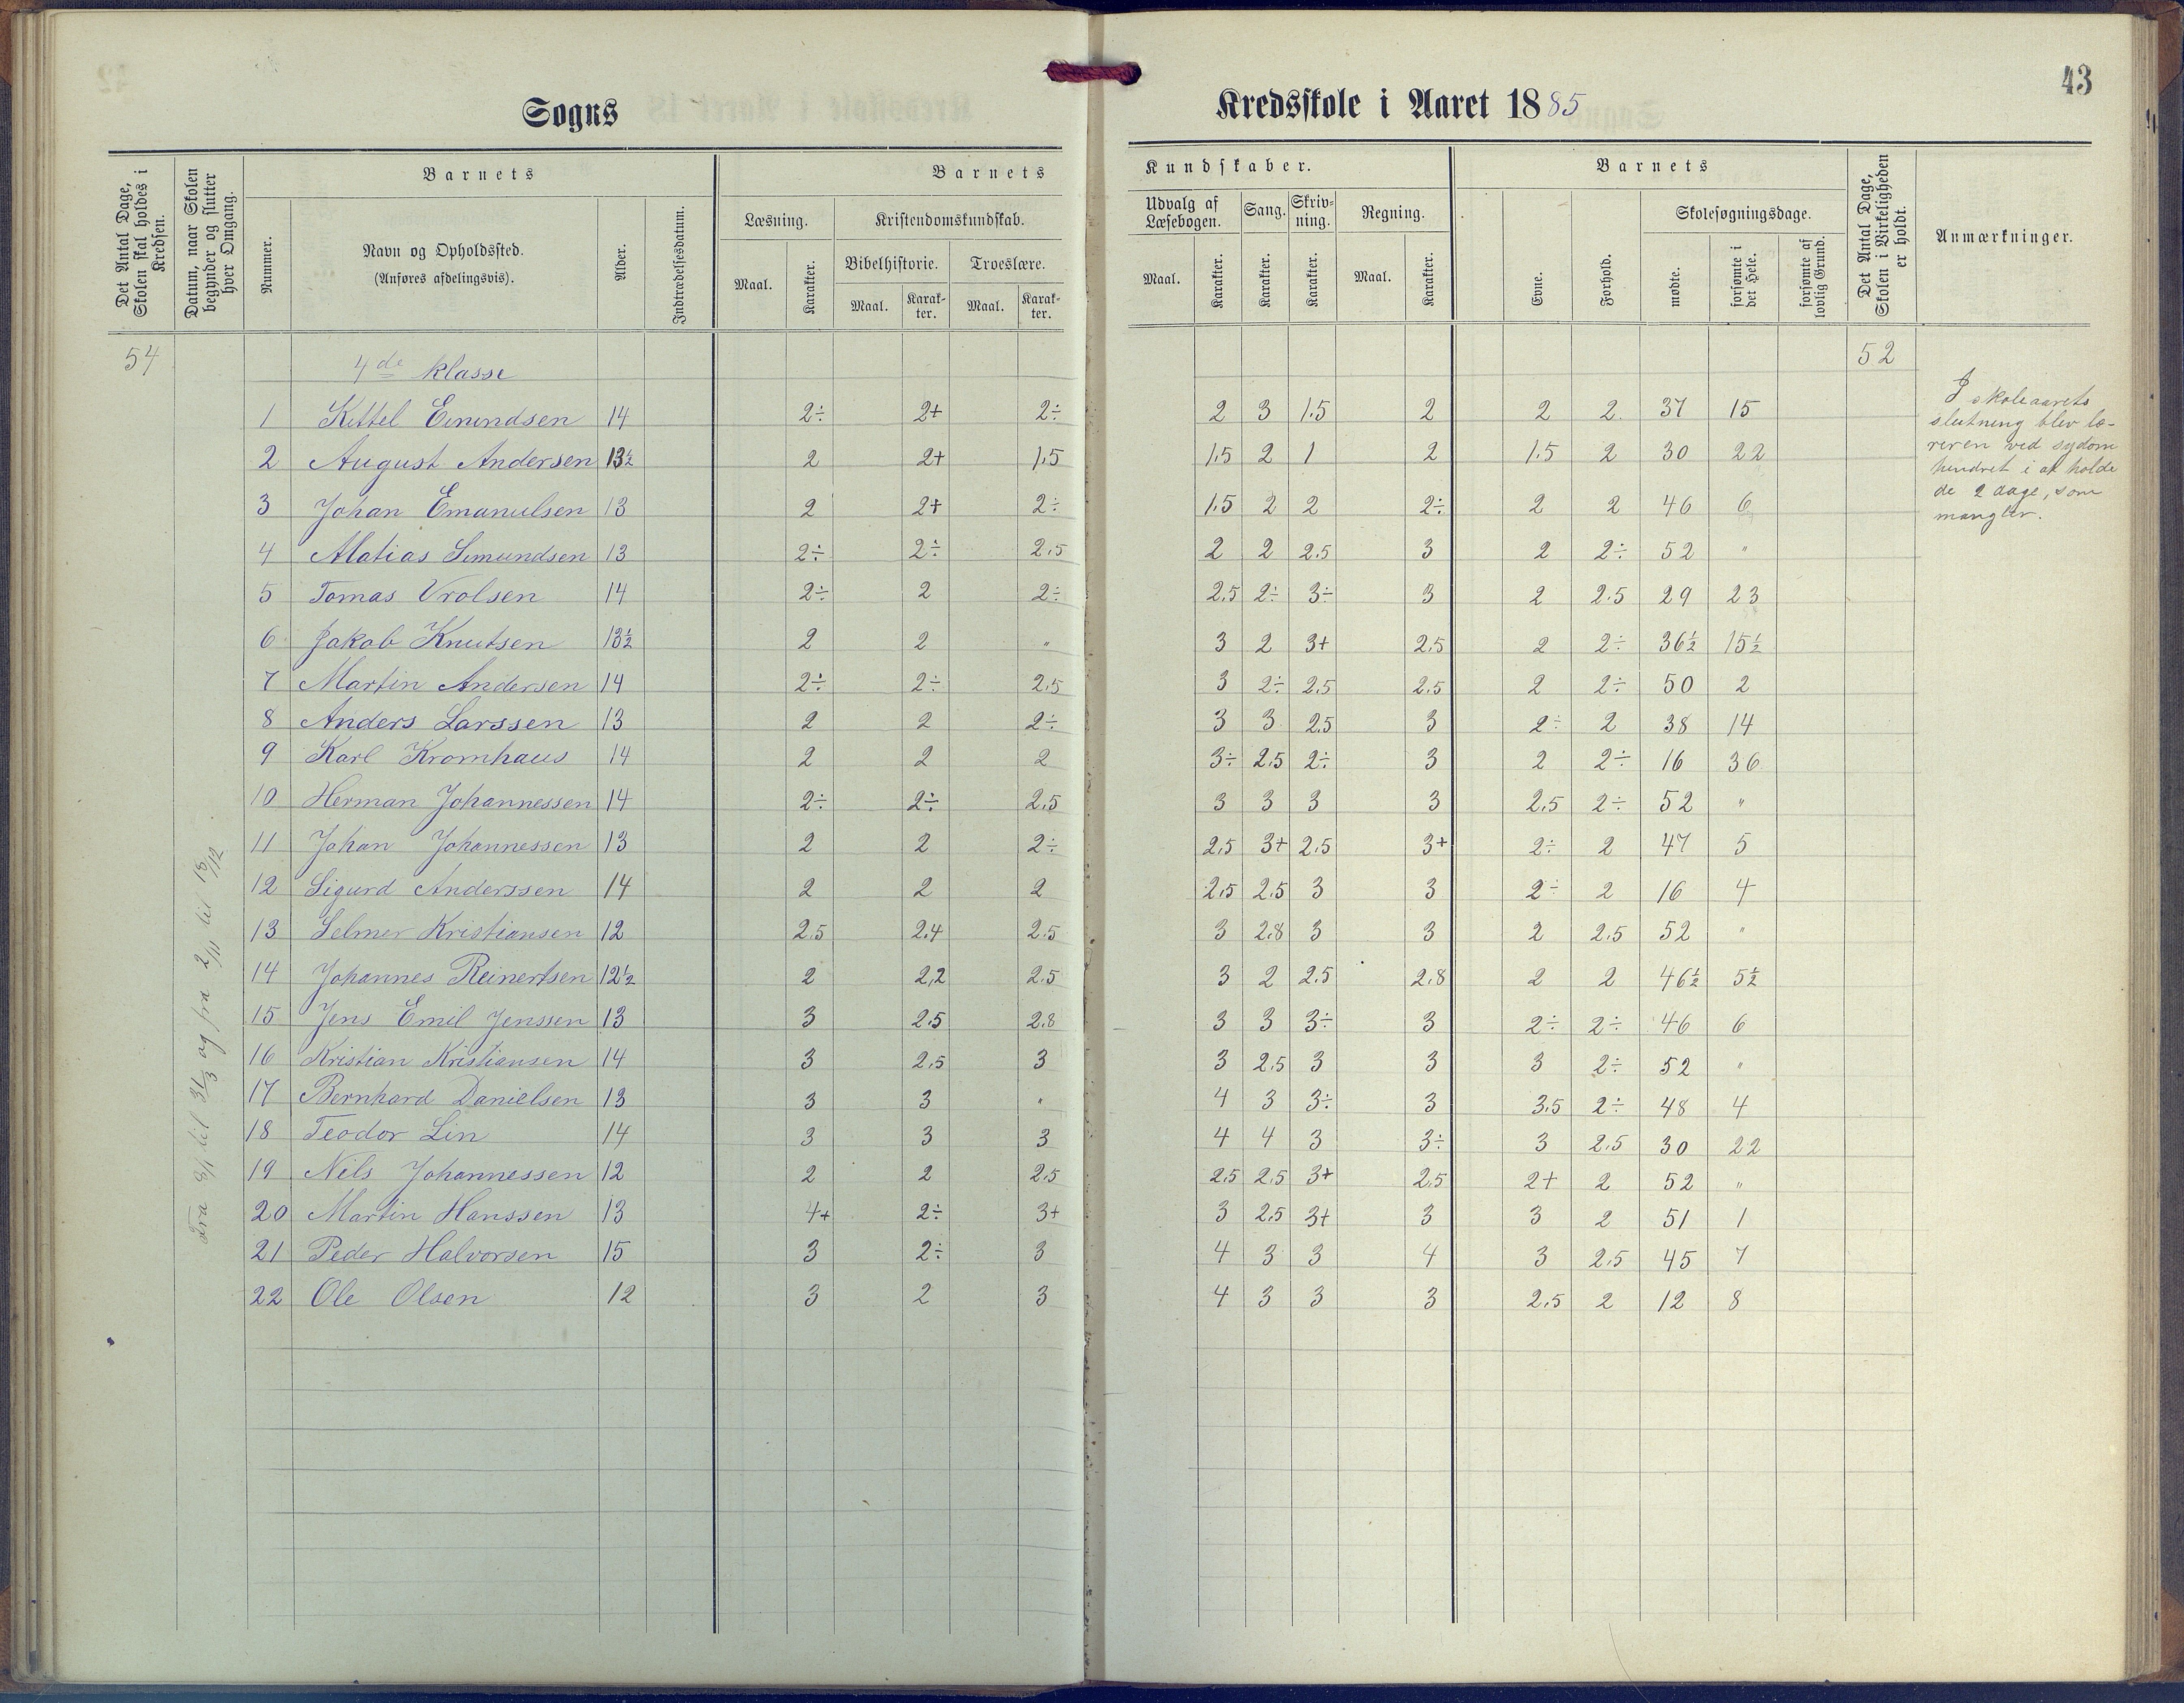 43
Sogns Kredsskole i Aaret 1885
Det Antal Dage, Skolen skal holdes i Kredsen.
Datum, naar Skolen begynder og slutter hver Omgang.
Barnets
Nummer.
Navn og Opholdssted.
(Anføres afdelingsvis).
Alder.
Indtrædelsesdatum.
Barnets Kundskaber.
Læsning.
Maal. Karakter.
Kristendomskundskab.
Bibelhistorie. Troeslære.
Maal. Karakter. Maal. Karakter.
Udvalg af Læsebogen. Sang. Skrivning. Regning.
Maal. Karakter. Karakter. Karakter. Maal. Karakter.
Barnets
Evne. Forhold.
Skolesøgningsdage.
mødte. forsømte i det Hele. forsømte af lovlig Grund.
Det Antal Dage, Skolen i Virkeligheden er holdt.
Anmærkninger.
54 4de klasse 52
1 Kittel Emundsen 14 2÷ 2+ 2÷ 2 3 1.5 2 2 2 37 15
2 August Andersen 13½ 2 2+ 1,5 1,5 2 1 2 1.5 2 30 22
3 Johan Emanuelsen 13 2 2+ 2÷ 1.5 2 2 2÷ 2 2 46 6
4 Matias Simundsen 13 2÷ 2÷ 2,5 2 2 2.5 3 2 2÷ 52 "
5 Tomas Vrolsen 14 2÷ 2 2÷ 2,5 2÷ 3÷ 3 2 2.5 29 23
6 Jakob Knutsen 13½ 2 2 " 3 2 3+ 2,5 2 2÷ 36½ 15½
7 Martin Andersen 14 2÷ 2÷ 2,5 3 2÷ 2,5 2,5 2 2÷ 50 2
8 Anders Larssen 13 2 2 2÷ 3 3 2,5 3 2÷ 2 38 14
9 Karl Kromhaus 14 2 2 2 3÷ 2.5 2÷ 3 2 2÷ 16 36
10 Herman Johannessen 14 2÷ 2÷ 2,5 3 3 3 3 2,5 2÷ 52 "
11 Johan Johannessen 13 2 2 2÷ 2,5 3+ 2,5 3+ 2÷ 2 47 5
12 Sigurd Anderssen 14 2 2 2 2,5 2,5 3 3 2÷ 2 16 4
13 Selmer Kristiansen 12 2.5 2.4 2.5 3 2,8 3 3 2 2.5 52 "
14 Johannes Reinertsen 12½ 2 2,2 2.5 3 2 2.5 2.8 2 2 46½ 5½
15 Jens Emil Jenssen 13 3 2.5 2.8 3 3 3÷ 3 2÷ 2÷ 46 6
16 Kristian Kristiansen 14 3 2,5 3 3 2.5 3 3 3 2÷ 52 "
17 Bernhard Danielsen 13 3 3 " 4 3 3÷ 3 3,5 2÷ 48 4
18 Teodor Lin 14 3 3 3 4 4 3 3÷ 3 2.5 30 22
19 Nils Johannessen 12 2 2 2,5 2,5 2,5 3+ 2,5 2+ 2 52 "
20 Martin Hanssen 13 4+ 2÷ 3+ 3 2,5 3+ 3 3 2 51 1
21 Peder Halvorsen 15 3 2÷ 3 4 3 3 4 3 2,5 45 7
22 Ole Olsen 12 3 2 3 4 3 3 3 2,5 2 12 8
Fra 8/1 til 31/3 og fra 2/11 til 18/12
I skoleaarets
slutning blev læ-
reren ved sydom
hindret i at holde
de 2 dage, som
mangler.